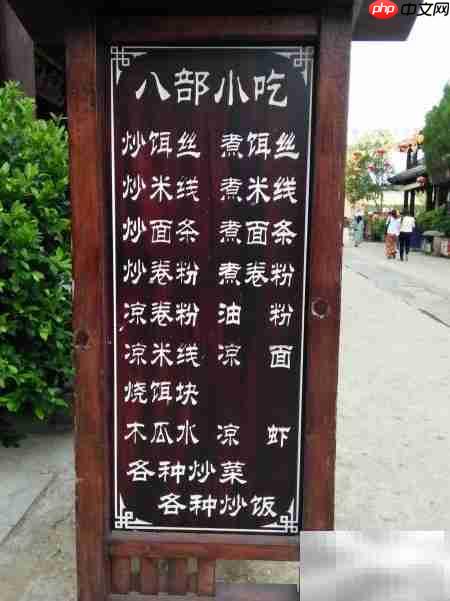 php 中文网
八部小吃
炒饵丝 煮饵丝
炒米线 煮米线
炒面条 煮面条
炒卷粉 煮卷粉
凉卷粉 油粉
凉米线 凉面
烧饵块
木瓜水 凉虾
各种炒菜
各种炒饭